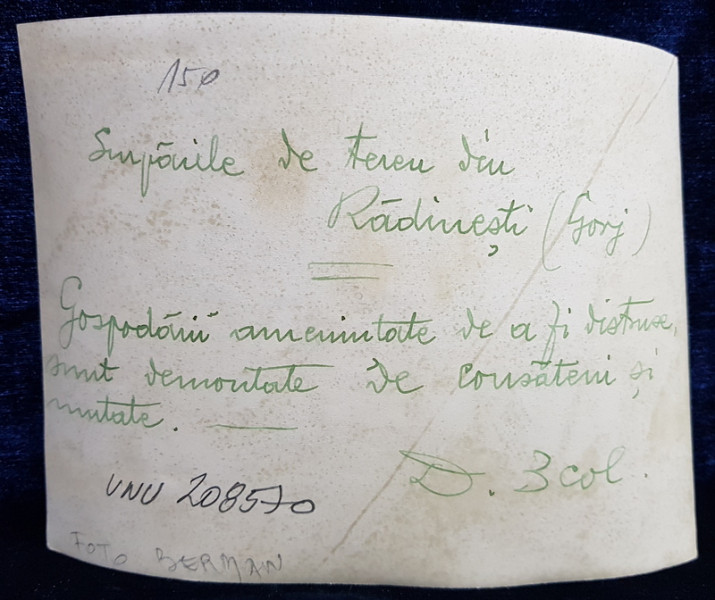 150
Surpările de teren din
Rădinești (Gorj)
Gospodării amenintate de a fi distruse,
sunt demontate de consăteni și
mutate.
D. 3 col.
VNU 208570
FOTO BERMAN